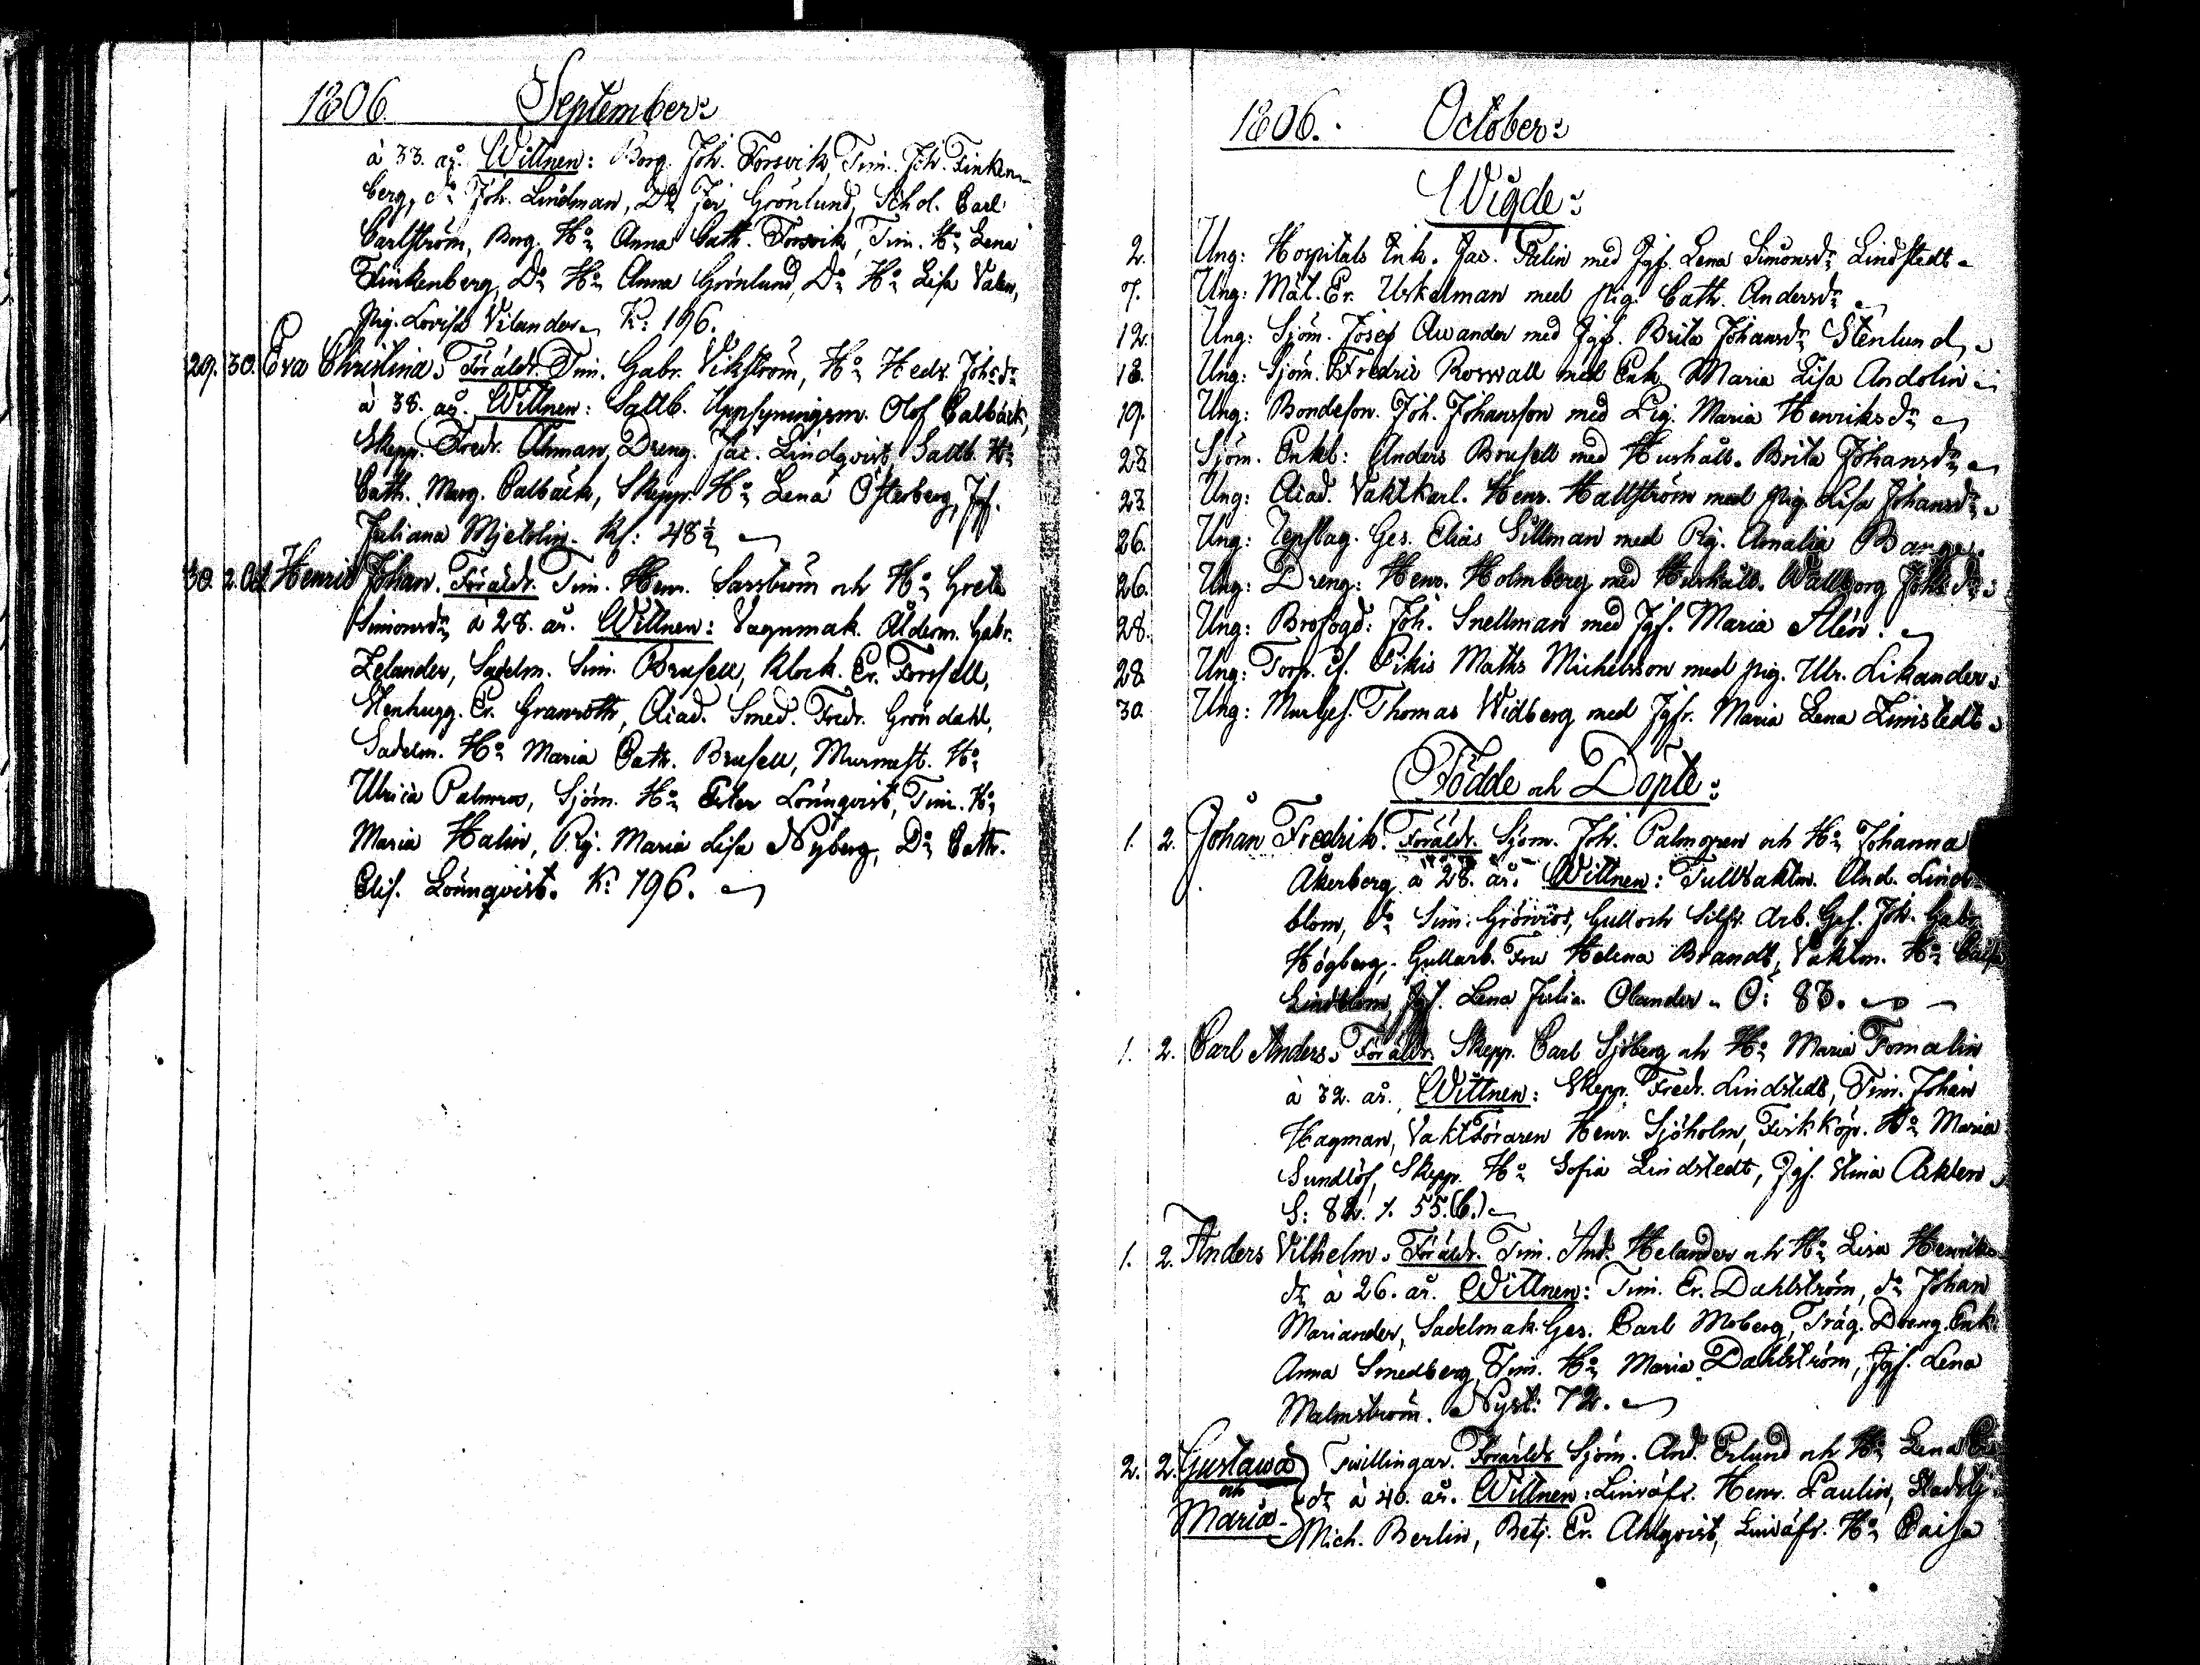 1806. September:
à 33. år. Wittnen: Borg. Joh. Forsvik, Tim. Joh. Finken-
berg, do Joh. Lindman, Do Grönlund, Schol. Carl
Carlström, Borg. Ho Anna Cath. Forsvik, Tim. Ho Lena
Finkenberg, Do Ho Anna Grönlund, Do Ho Lisa Valen,
Pig. Lovisa Vilander. K: 196.
29. 30. Eva Christina. Föräldr. Tim. Gabr. Vikström, Ho Hedv. Johsdr
à 38. år. Wittnen: Saltb. Uppsyningsm. Olof Calbäck,
Skepp. Fredr. Åhman, Dreng. Jac. Lindqvist, Saltb. Ho
Cath. Marg. Calbäck, Skepp. Ho Lena Österberg, Jgf.
Juliana Mjetolin. Kl: 48½
30. 2. Oct. Henric Johan. Föräldr. Tim. Henr. Sarström och Ho Greta
Simonsdr à 28. år. Wittnen: Vagnmak. Ålderm. Gabr.
Zelander, Sadelm. Sim. Brusell, Klock. Er. Forsell,
Stenhugg. Er. Granroth, Acad. Smed. Fredr. Gröndahl,
Sadelm. Ho Maria Cath. Brusell, Murmäst. Ho
Ulrica Palmros, Sjöm. Ho Ester Lönnqvist, Tim. Ho
Maria Halin, Pig. Maria Lisa Nyberg, Do Cath.
Elis. Lönnqvist. K: 196.
1806. October:
Wigde:
2. Ung: Hospitals Jac. Palin med Jgf. Lena Simonsdr Lindstedt
7. Ung: Mål. Er. Urkelman med pig. Cath. Andersdr
12. Ung: Sjöm. Josef Avander med Jgf. Brita Johansdr Stenlund
18. Ung: Sjöm. Fredric Roswall med Enk. Maria Lisa Andolin
19. Ung: Bondeson. Joh. Johansson med Pig. Maria Henriksdr
23. Sjöm. Enkl: Anders Brusell med Hushåll. Brita Johansdr
23. Ung: Acad. Vaktkarl. Henr. Hallström med pig. Lisa Johansdr
26. Ung: Repslag. Ges. Elias Gillman med Pig. Amalia Barger
26. Ung: Dreng: Henr. Holmberg med Hushåll. Wallborg Johsdr
28. Ung: Brofogd: Joh. Snellman med Jgf. Maria Alén.
28. Ung: Torp. Pikis Maths Michelsson med pig. Ulr. Likander
30. Ung: Murges. Thomas Widberg med Jgfr. Maria Lena Limstedt
Födde och Döpte:
1. 2. Johan Fredrik. Föräldr. Sjöm. Joh. Palmgren och Ho Johanna
Åkerberg à 28. år. Wittnen: Tullvaktm. And. Lind-
blom, do Sim: Grönros, Gull och Silfr. Arb. Ges. Joh. Gabr.
Högberg, Gullarb. Fru Helena Brandt, Vaktm. Ho Caisa
Lindblom, Jgf. Lena Julia Olander. O: 83.
1. 2. Carl Anders. Föräldr. Skepp. Carl Sjöberg och Ho Maria Fomalin
à 32. år. Wittnen: Skepp. Fredr. Lindstedt, Tim. Johan
Hagman, Vaktföraren Henr. Sjöholm, Fiskköp. Ho Maria
Sundlöf, Skepp. Ho Sofia Lindstedt, Jgf. Stina Akten
S: 82. 1. 55.(b.)
1. 2. Anders Vilhelm. Föräldr. Tim. And. Helander och Ho Lisa Henriks-
dr à 26. år. Wittnen: Tim. Er. Dahlström, do Johan
Mariander, Sadelmak. Ges. Carl Moberg, Träg. Dreng. Enk.
Anna Smedberg, Tim. Ho Maria Dahlström, Jgf. Lena
Malmström. Nyst: 72.
2. 2. Gustava och Maria. Twillingar. Föräldr. Sjöm. And. Erlund och Ho Lena
dr à 40. år. Wittnen: Linväfv. Henr. Paulin,
Mich. Berlin, Betj. Er. Ahlqvist, Linväfv. Ho Caisa